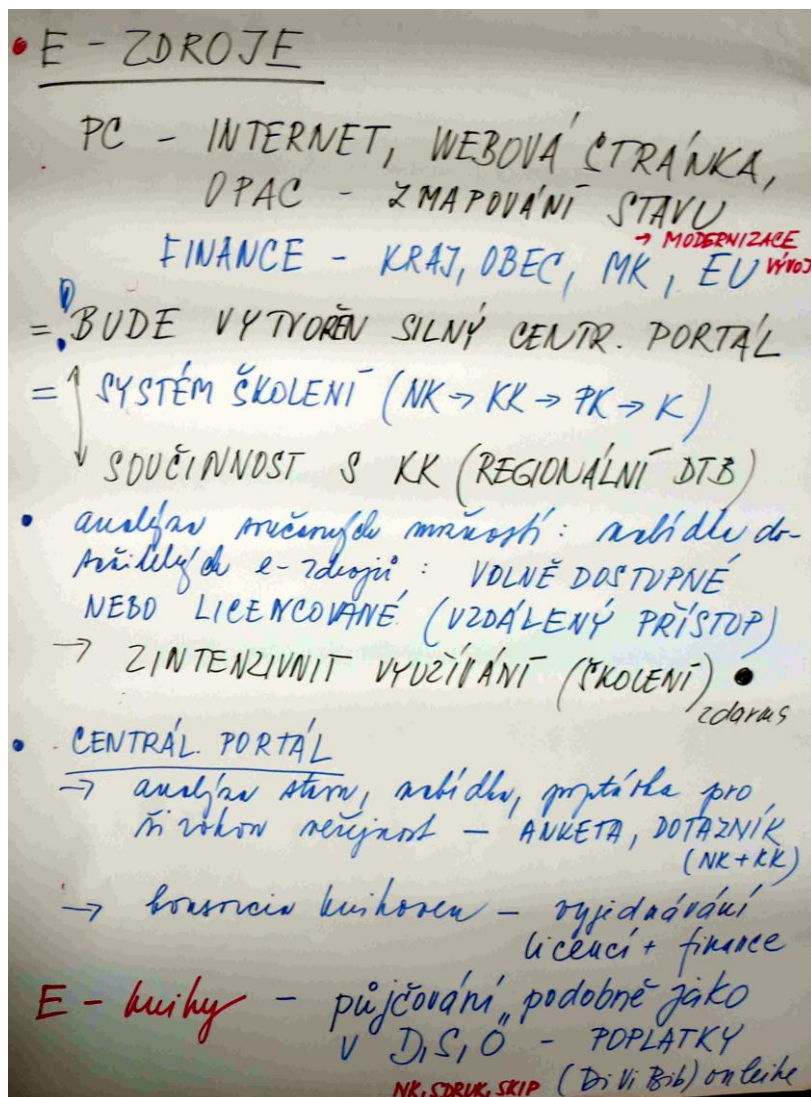 • E - ZDROJE
PC - INTERNET, WEBOVÁ STRÁNKA,
OPAC - ZMAPOVÁNÍ STAVU
→ MODERNIZACE
FINANCE - KRAJ, OBEC, MK, EU VÝVOJ
= ! BUDE VYTVOŘEN SILNÝ CENTR. PORTÁL
= SYSTÉM ŠKOLENÍ (NK → KK → PK → K)
SOUČINNOST S KK (REGIONÁLNÍ DTB)
• analýza současných možností: nabídka do-
sažitelných e-zdrojů: VOLNĚ DOSTUPNÉ
NEBO LICENCOVANÉ (VZDÁLENÝ PŘÍSTUP)
→ ZINTENZIVNIT VYUŽÍVÁNÍ (ŠKOLENÍ) •
zdarma
• CENTRÁL. PORTÁL
→ analýza stavu, nabídka, poptávka pro
širokou veřejnost - ANKETA, DOTAZNÍK
(NK+KK)
→ konsorcia knihoven - vyjednávání
licencí + finance
E - knihy - půjčování „podobně jako
v D, S, O - POPLATKY
NK, SDRUK, SKIP (DiViBib) onleihe